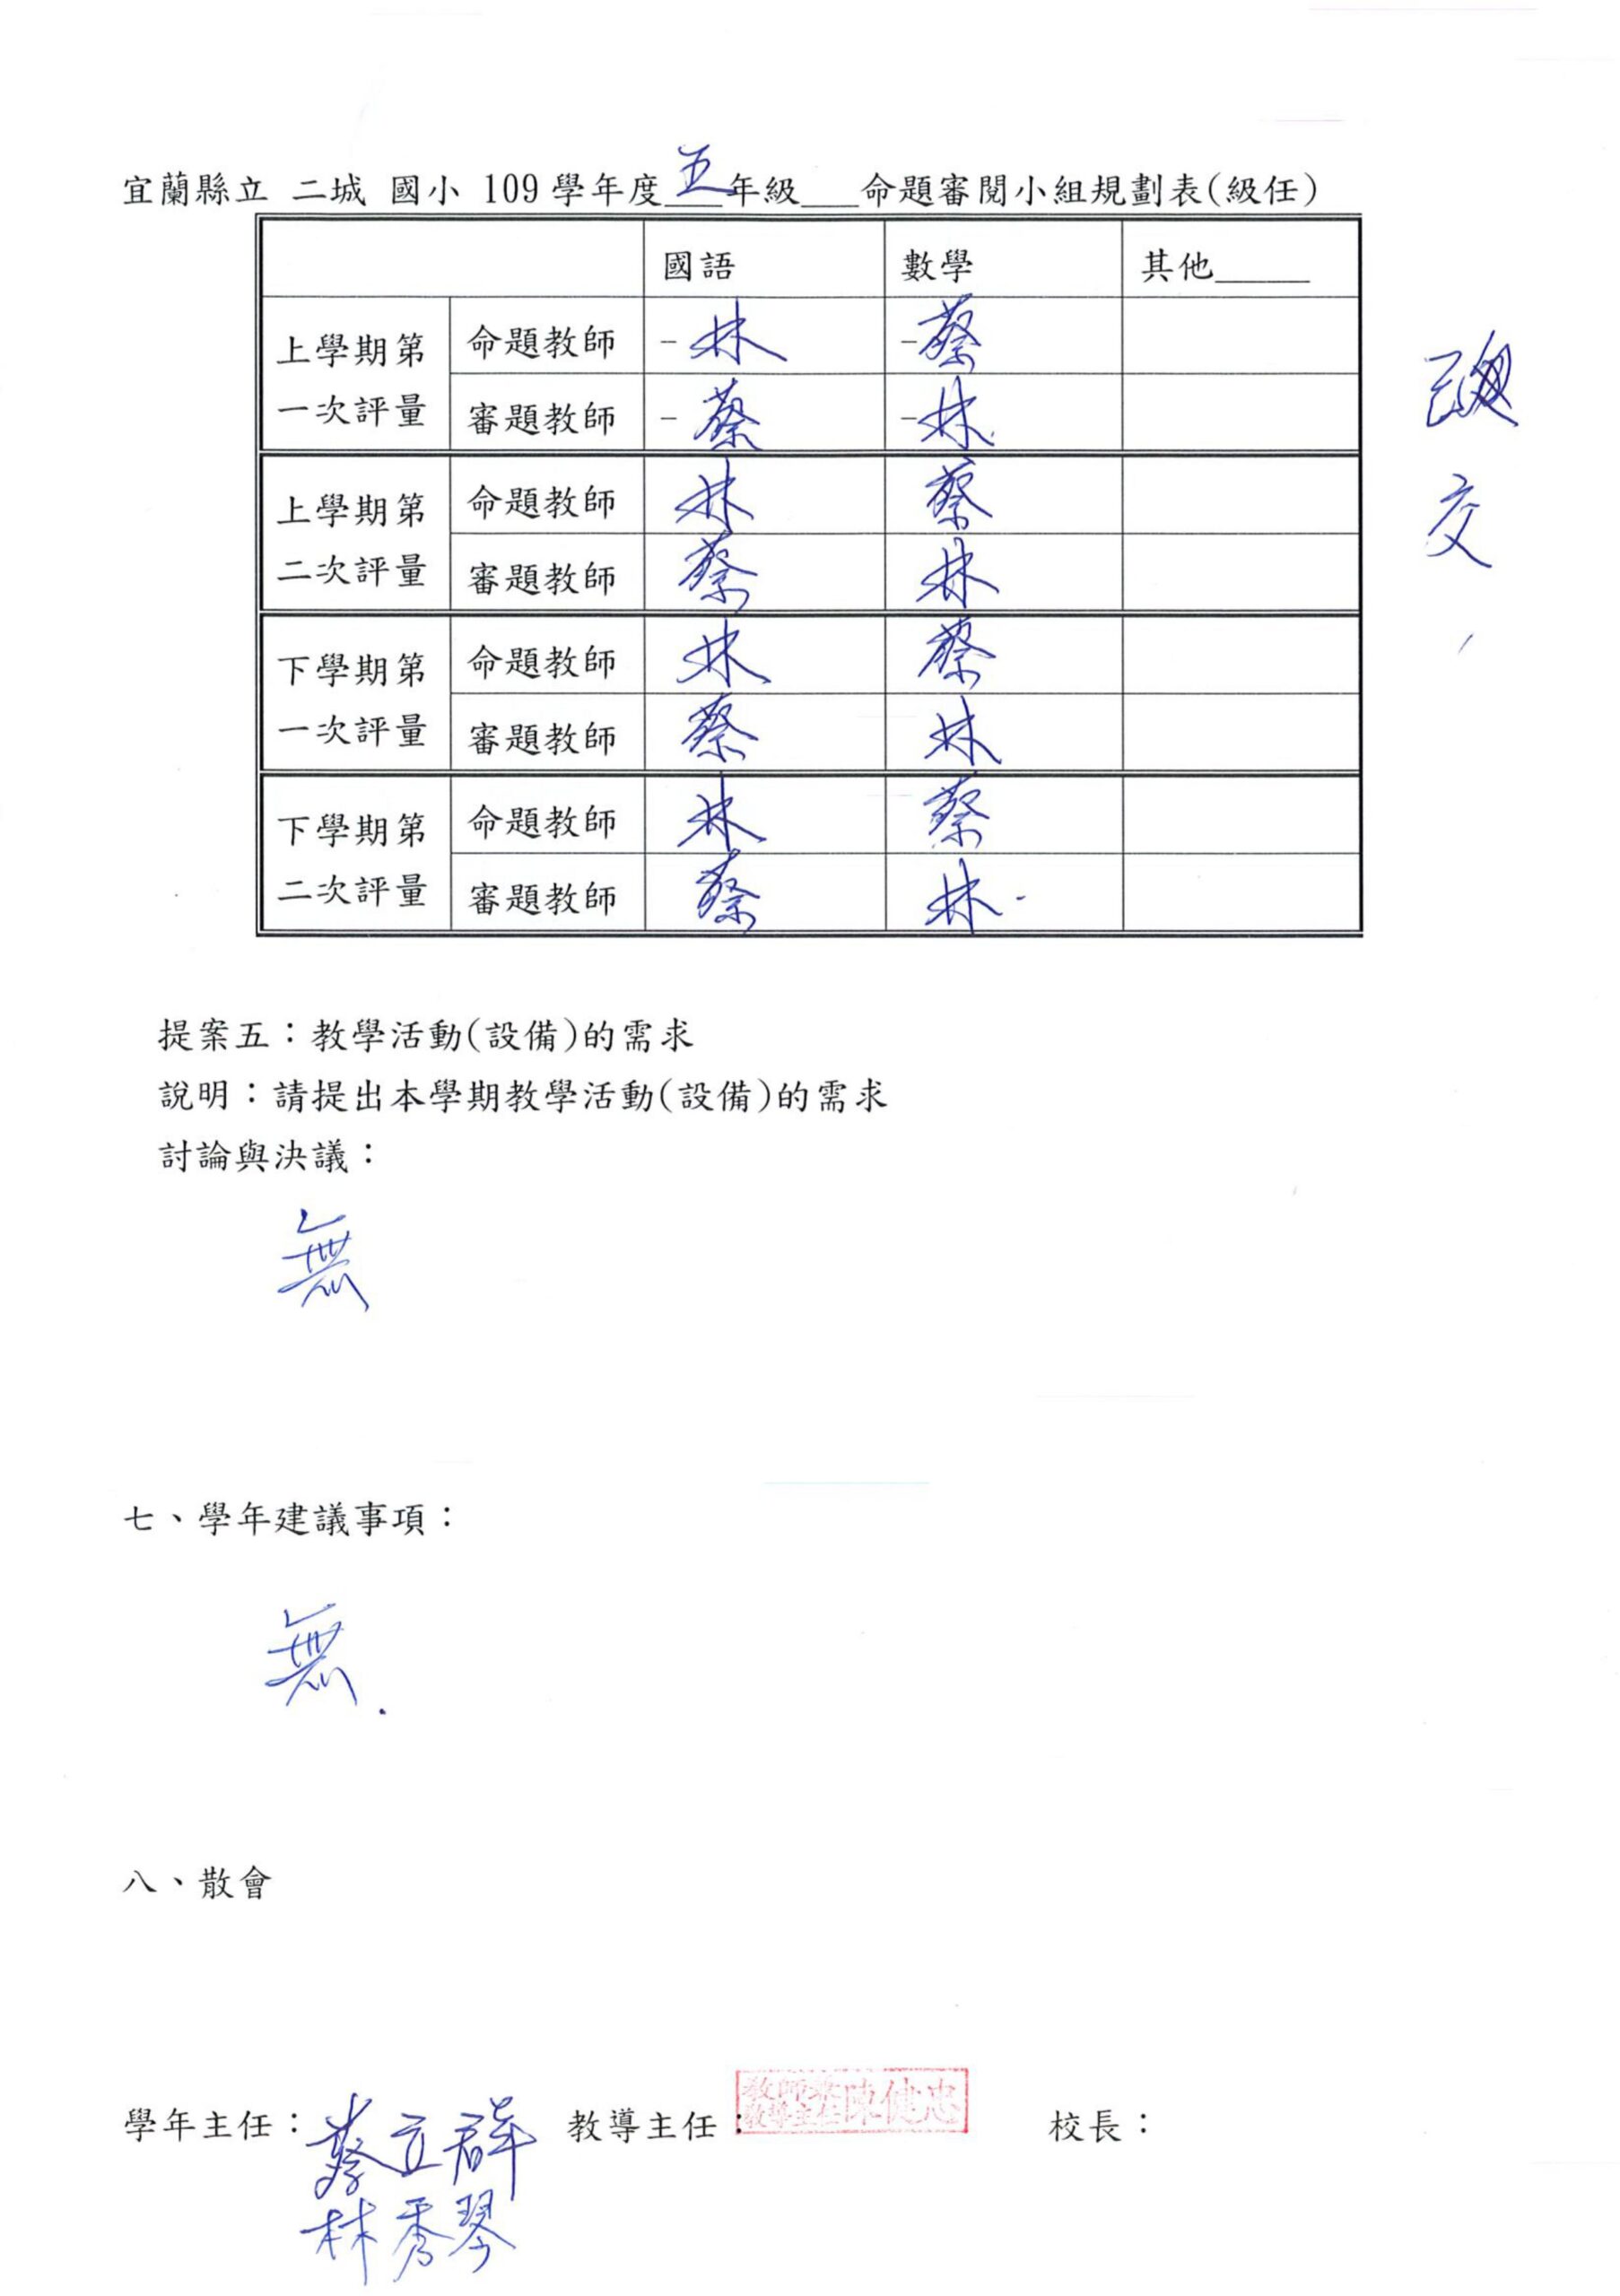 宜蘭縣立 二城 國小 109學年度五年級___命題審閱小組規劃表(級任)
國語 數學 其他_____
上學期第一次評量 命題教師 -林 -蔡
審題教師 -蔡 -林
上學期第二次評量 命題教師 林 蔡
審題教師 蔡 林
下學期第一次評量 命題教師 林 蔡
審題教師 蔡 林
下學期第二次評量 命題教師 林 蔡
審題教師 蔡 林
交
提案五：教學活動(設備)的需求
說明：請提出本學期教學活動(設備)的需求
討論與決議：
無
七、學年建議事項：
無.
八、散會
學年主任：蔡立群 教導主任：教師兼教導主任陳健忠 校長：
林秀琴